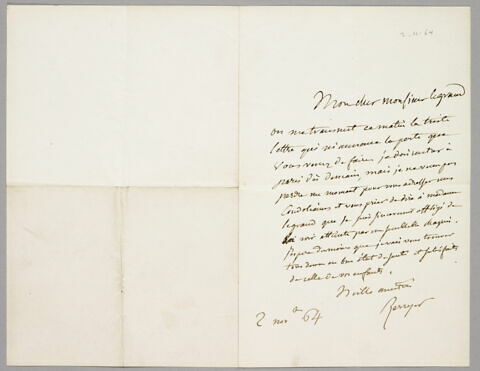 2-11-64
Mon cher monsieur legrand
on me transmet ce matin la triste
lettre qui m'annonce la perte que
vous venez de faire, je dois rentrer à
paris dès demain, mais je ne veux pas
perdre un moment pour vous adresser mes
condoléances et vous prier de dire à madame
legrand que je suis affligé de
la voir atteinte par un pareil chagrin.
j'espère du moins que je vais vous trouver
tous deux en bon état de santé et satisfaits
de celle de vos enfants.
mille amitiés
Berryer
2 nov. 64